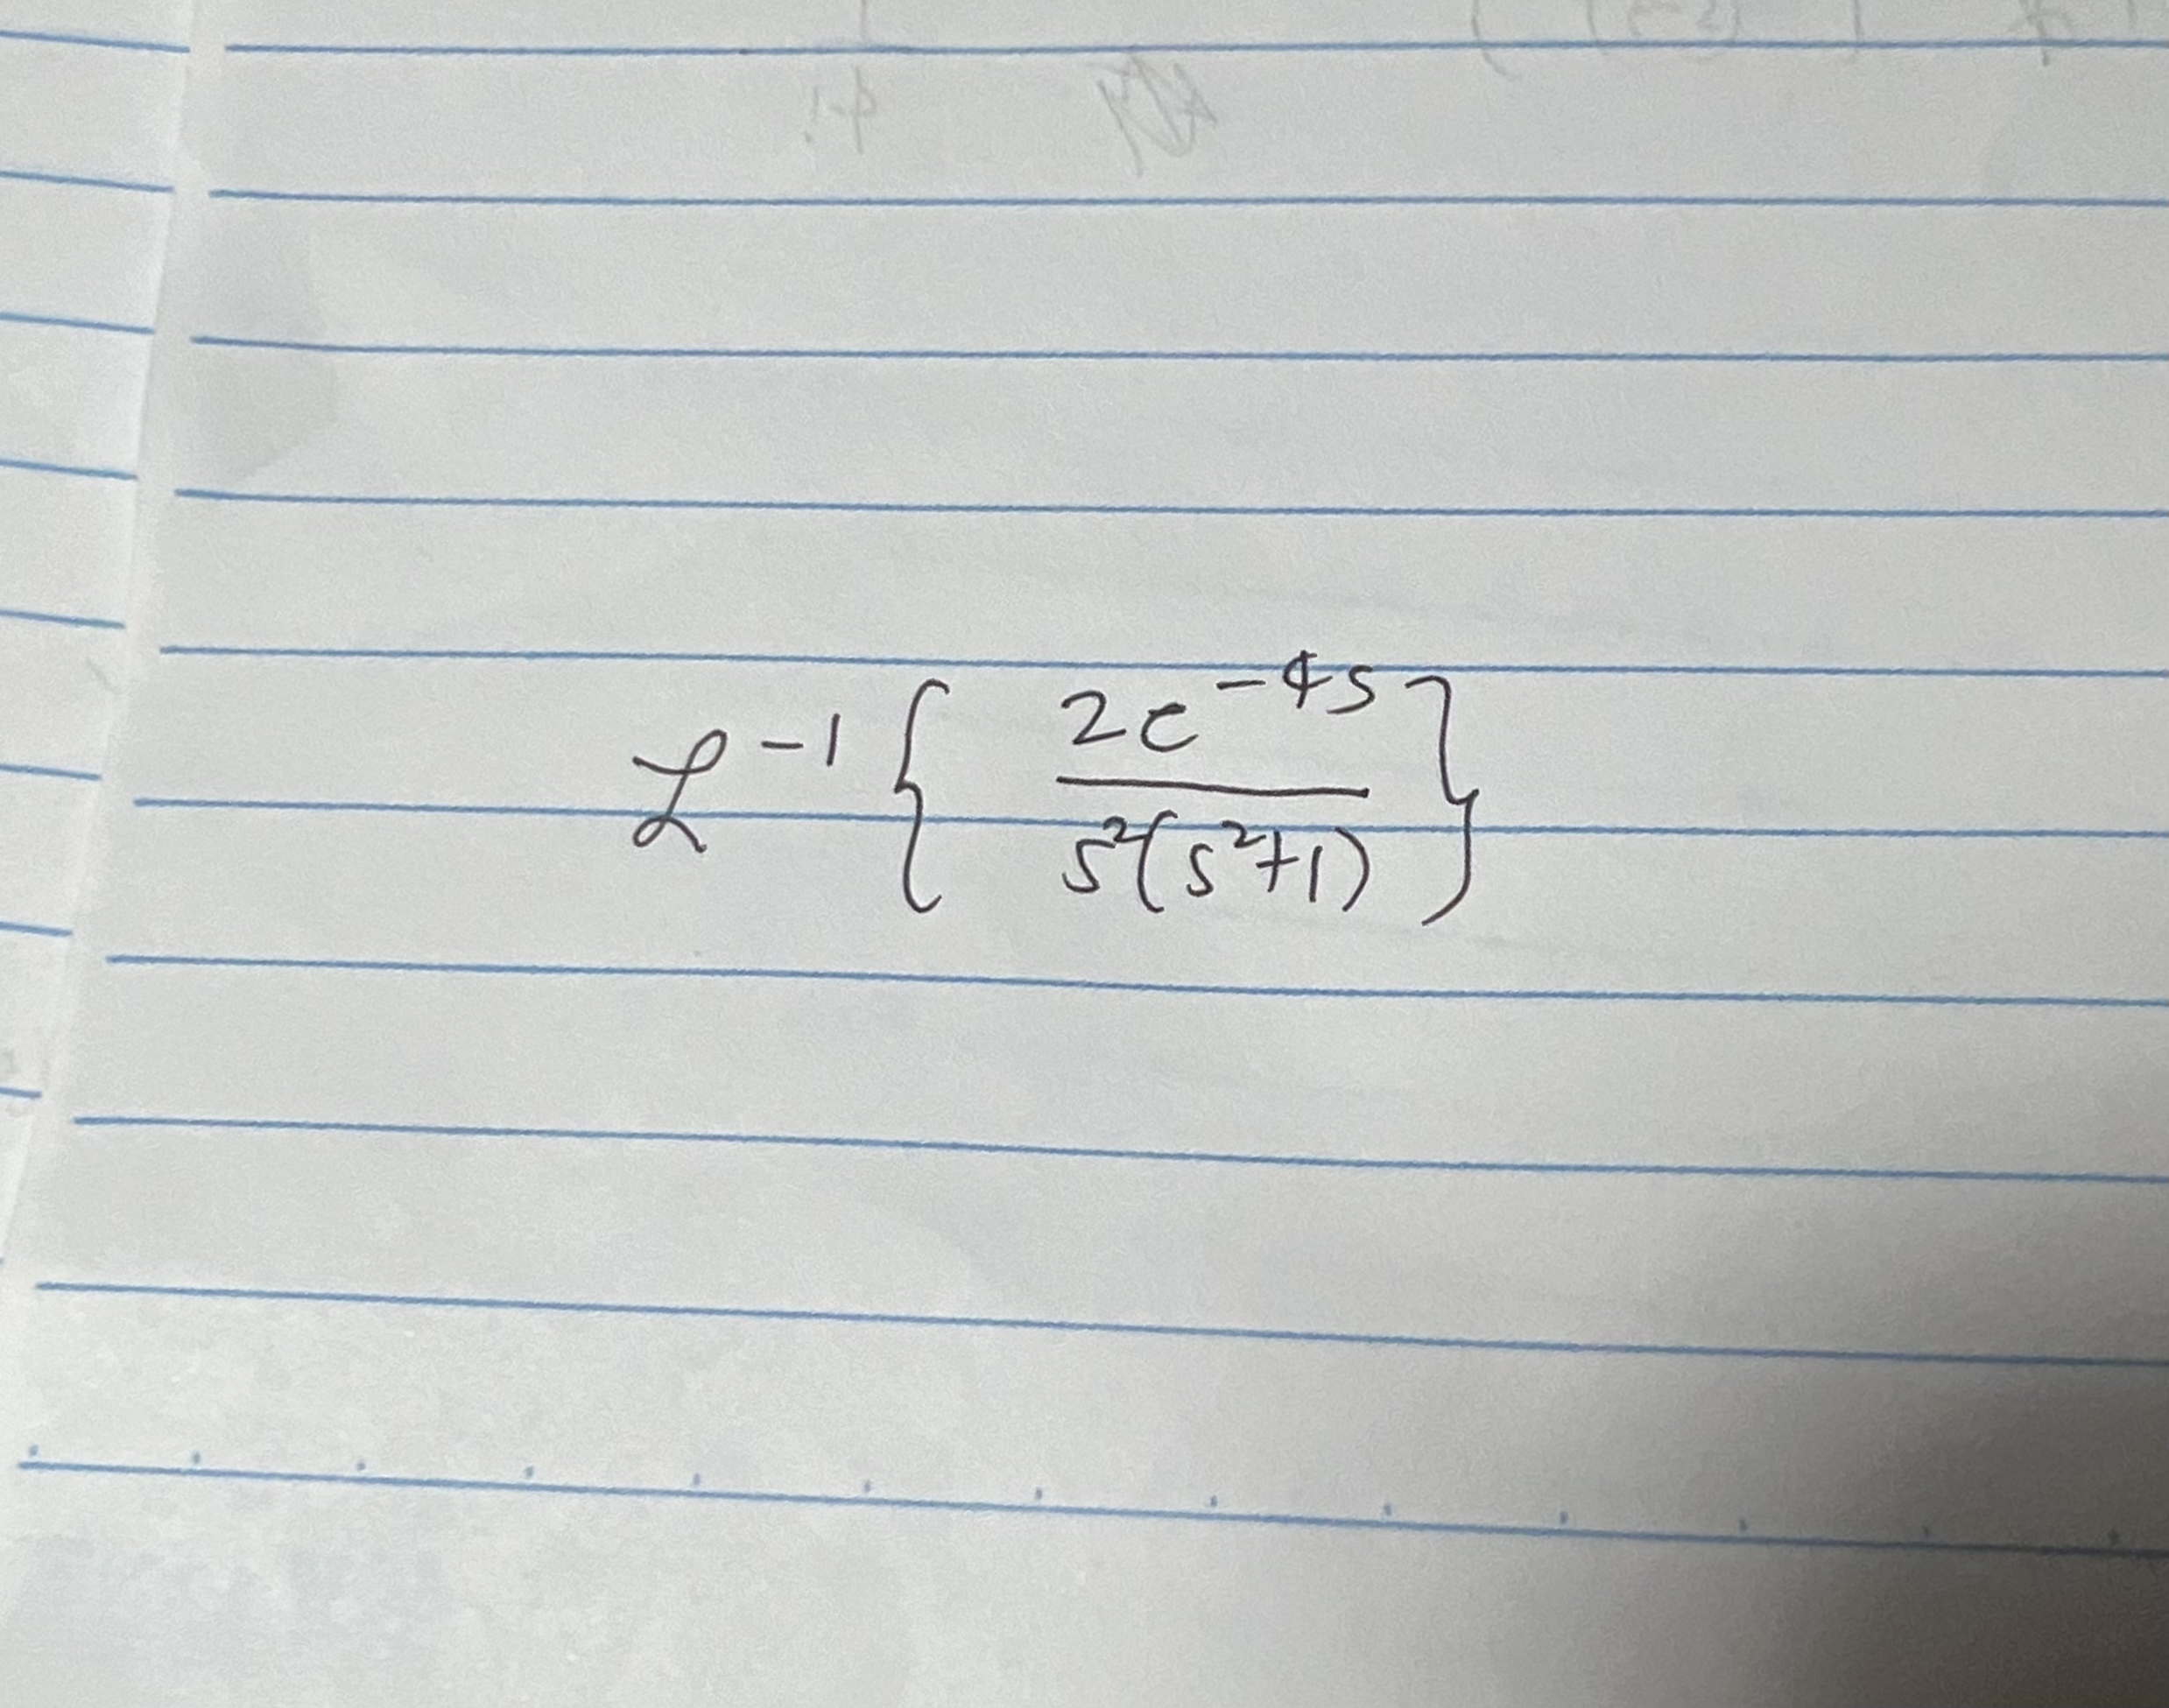 ℒ⁻¹ { 2e⁻⁴ˢ / s²(s²+1) }